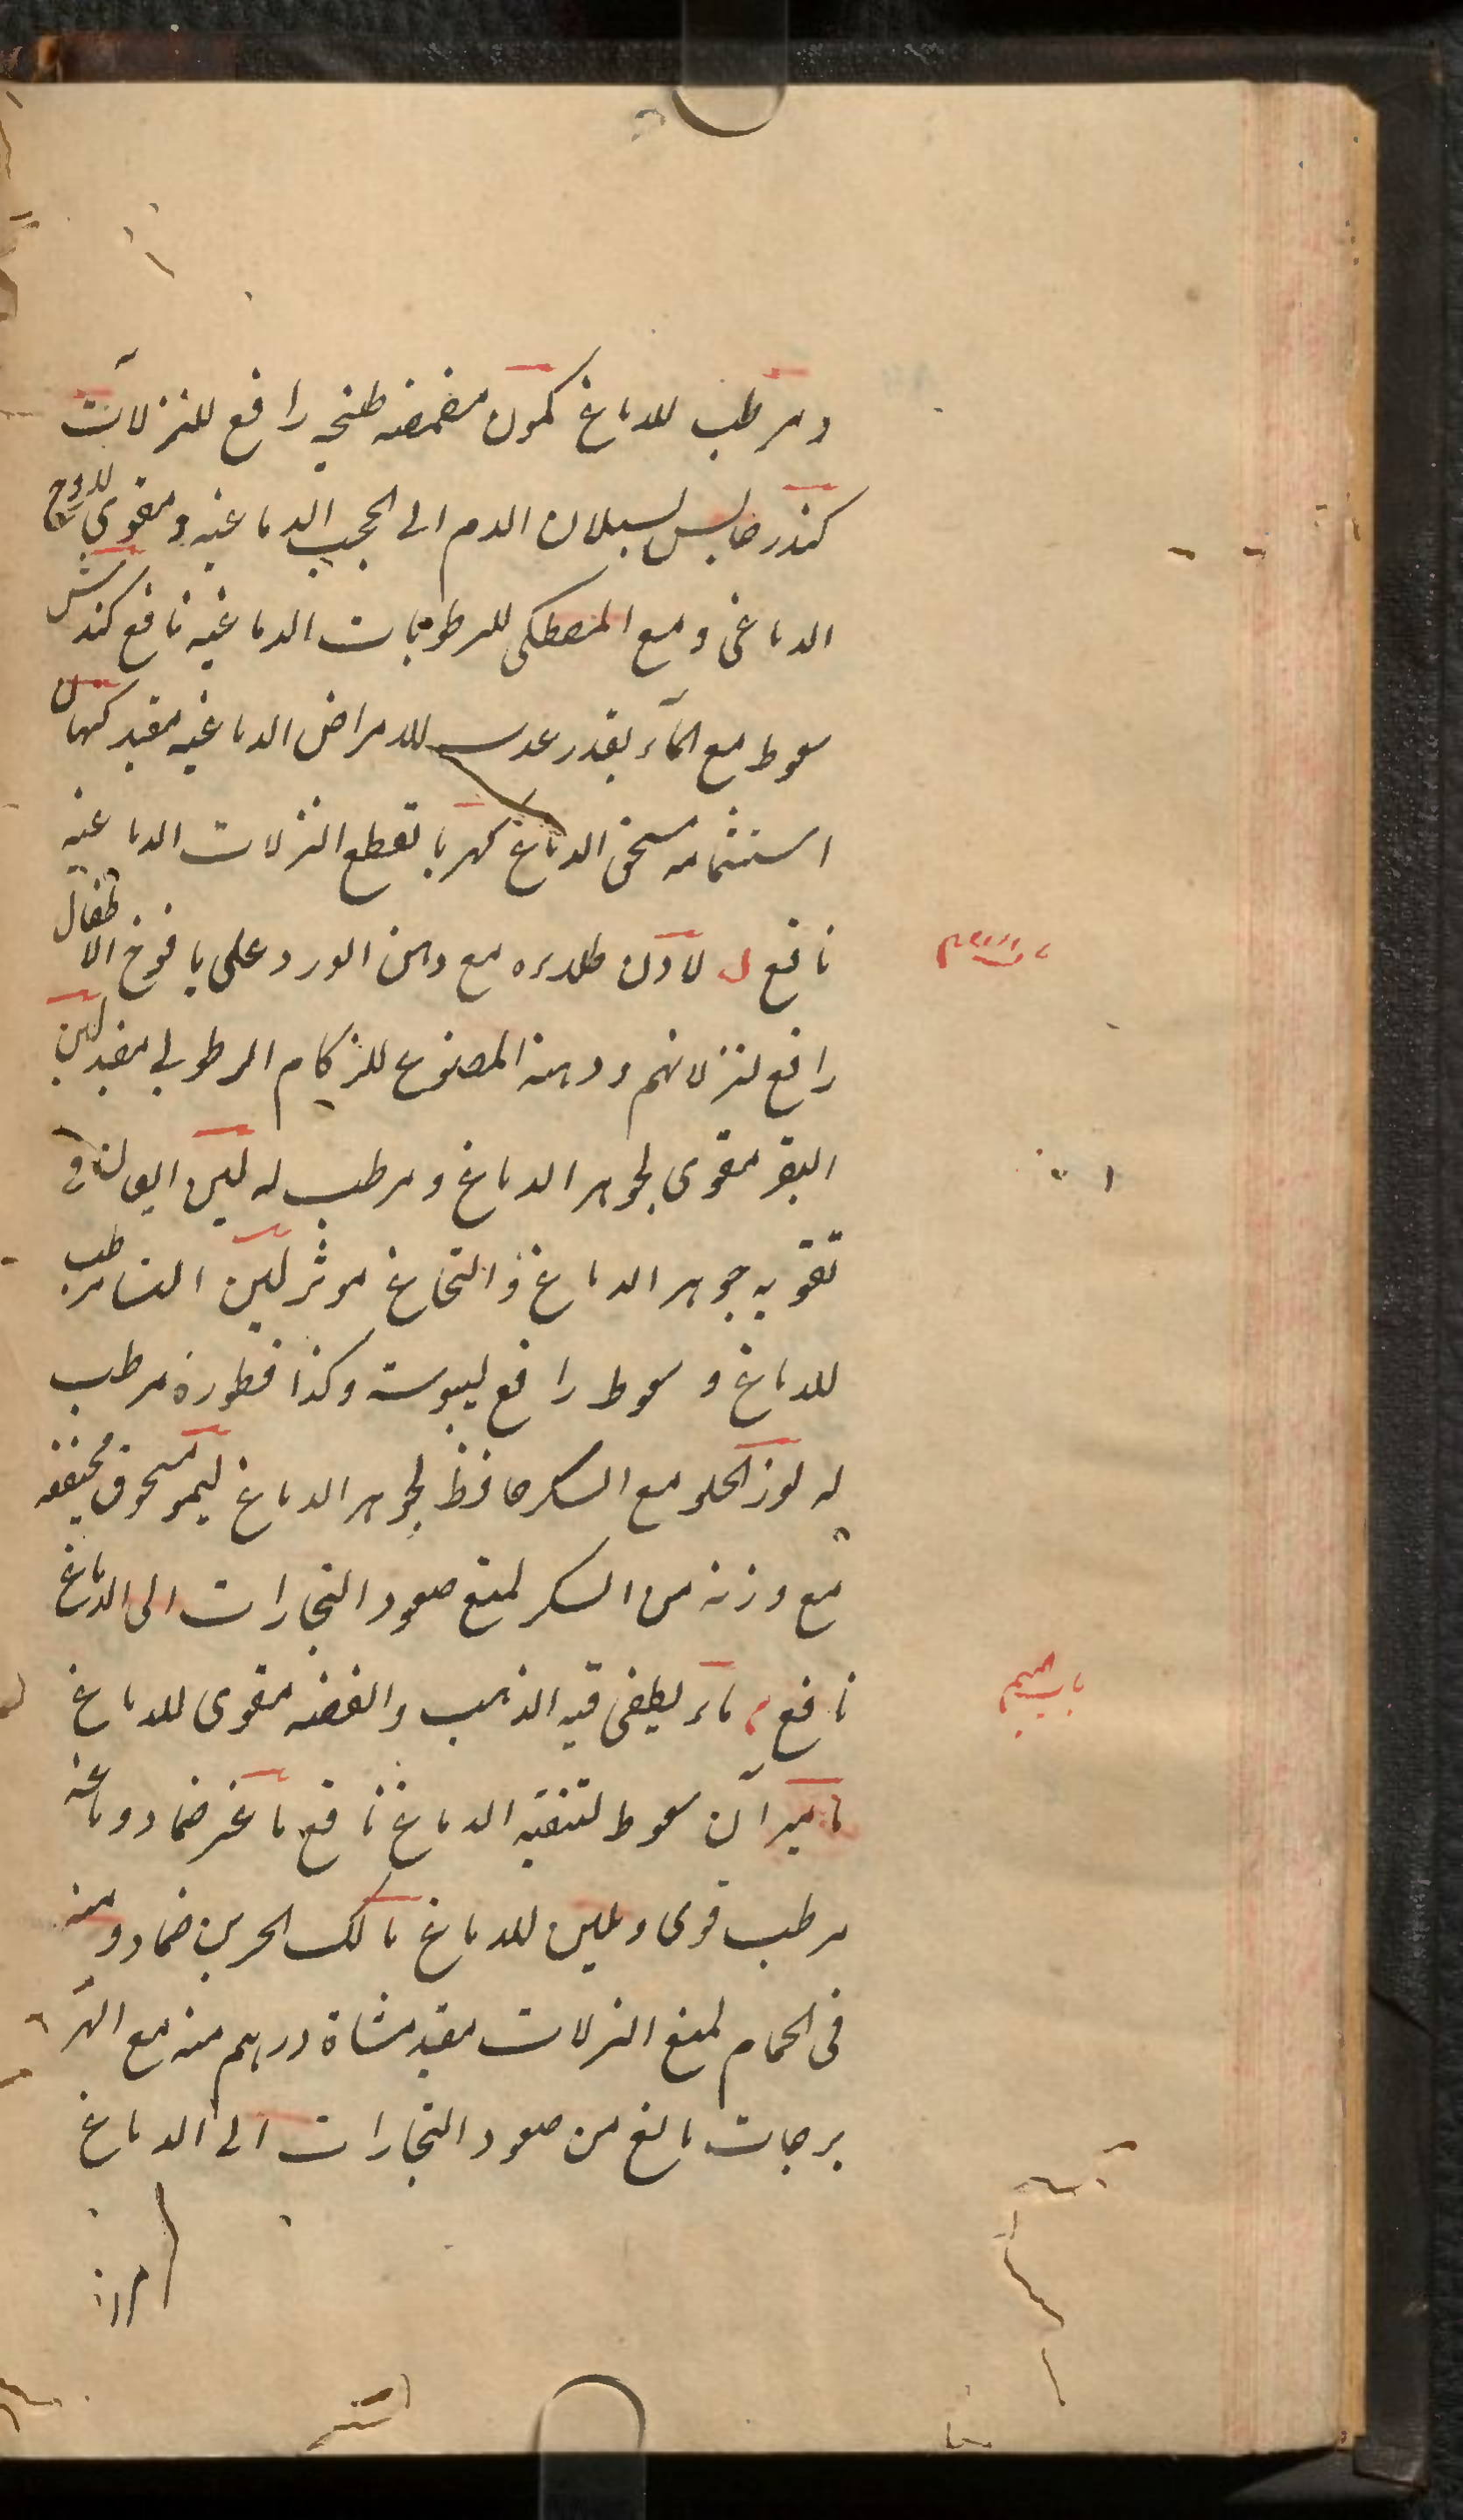 ومرطب للدماغ كمون مضمضه طبخه رافع للنزلات
كندر حابس لسيلان الدم الى الحجب الدماغيه ومقوي للروح
الدماغى ومع المصطكى للرطوبات الدماغيه نافع كندش
سعوط مع المآء بقدر عدسه للامراض الدماغيه مفيد
استشمامه مسخن الدماغ كهربا لقطع النزلات الدماغيه
نافع ل لادن طلاءه مع دهن الورد على يافوخ الاطفال
رافع لنزلاتهم ودهنه المصنوع للزكام الرطوبى مفيد لبن
البقر مقوى لجوهر الدماغ ومرطب له لبن فى
تقويه جوهر الدماغ و النخاع موثر لبن مرطب
للدماغ و سعوط رافع ليبوسته وكذا قطوره مرطب
له لوز الحلو مع السكر حافظ لجوهر الدماغ ليمو مسحوق مجففه
مع وزنه من السكر لمنع صعود البخارات الى الدماغ
باب الميم
نافع م ماء يطفى فيه الذهب والفضه مقوى للدماغ
ماميران سعوط لتنقيه الدماغ نافع ضماد دماغه
مرطب قوى وملين للدماغ ضماد ومنه
فى الحمام لمنع النزلات مفيد درهم منه مع
مانع من صعود البخارات الى الدماغ